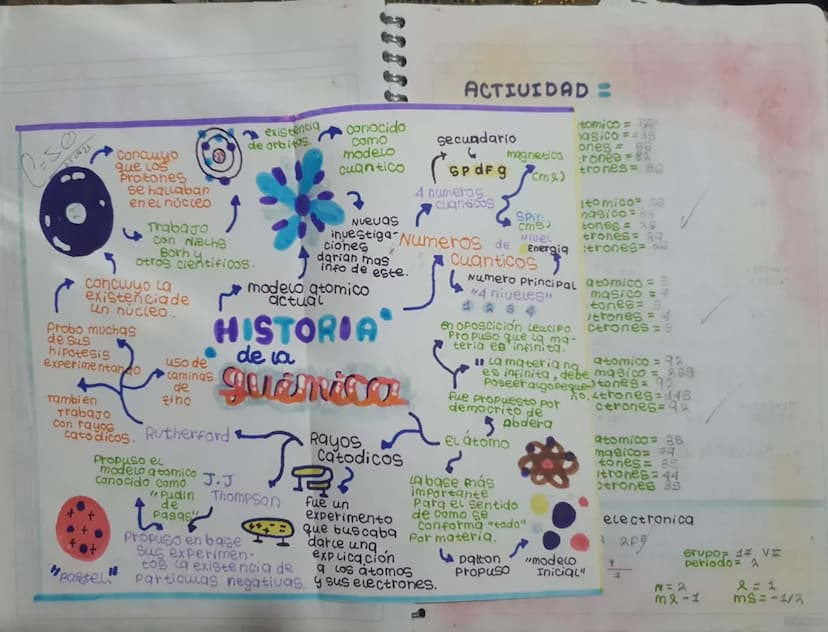 ACTIVIDAD =
HISTORIA
de la
química
modelo atomico
actual
Nuevas
investiga-
ciones
darían mas
info de este.
conocido
como
modelo
cuantico
existencia
de orbitas.
Trabajo
con Nielhs
Borh y
otros cientificos.
concluyo
que los
Protones
se hallaban
en el núcleo
concluyo la
existencia de
un núcleo.
Probo muchas
de sus
hipotesis
experimentando
uso de
laminas
de
zinc
Tambien
Trabajo
con rayos
catodicos.
Rutherford
Rayos
Catodicos
J.J
Thompson
Propuso el
modelo atomico
conocido como
"Pudin
de
Pasas"
"Pastel"
Propuso en base
sus experimen-
tos la existencia de
particulas negativas.
fue un
experimento
que buscaba
darle una
explicación
a los átomos
y sus electrones.
el átomo
la base más
importante
Para el sentido
de como se
conforma "todo"
Por materia.
Dalton
Propuso
"modelo
Inicial"
fue propuesto por
democrito de
Abdera
"la materia no
es infinita, debe
Poseer algo peque
no.
en oposcición leucipo
Propuso que la ma-
teria es infinita.
Numeros de
cuanticos
4 numeros
cuanticos
secundario
SPdFg
magnetico
Spin
(ms)
Nivel
Energia
Numero Principal
"4 niveles"
1 2 3 4
atomico = 92
masico = 238
tones = 92
ctrones = 92
atomico =
masico =
tones =
trones = 44
ctrones 35
electronica
Grupo= 17 VII
Periodo= 2
n = 2
l = 1
ml -1
ms = -1/2